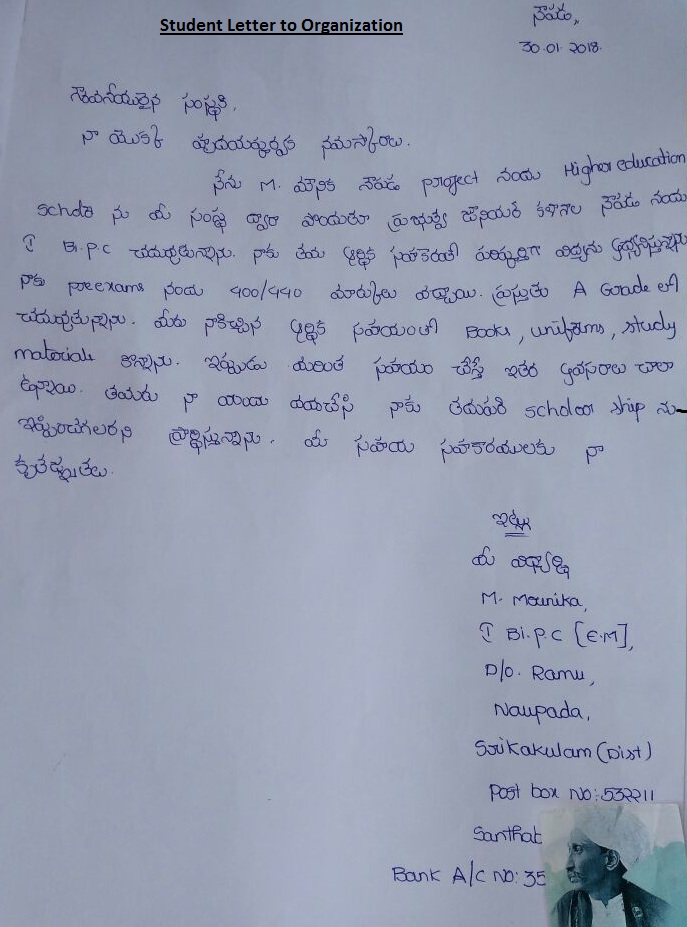 Student Letter to Organization
నౌపడ,
30.01.2018.
గౌరవనీయులైన సంస్థకి,
నా యొక్క హృదయపూర్వక నమస్కారాలు.
నేను M. మౌనిక నౌపడ project నందు Higher education
ను మీ సంస్థ ద్వారా పొందుతూ ప్రభుత్వ జూనియర్ కళాశాల నౌపడ నందు
I Bi.P.C చదువుతున్నాను. నాకు తమ ఆర్థిక సహకారంతో విద్యను
నాకు preexams నందు 400/440 మార్కులు వచ్చాయి. ప్రస్తుతం A Grade లో
చదువుతున్నాను. మీరు నాకిచ్చిన ఆర్థిక సహయంతో Books, uniforms, study
materials కొన్నాను. ఇప్పుడు మరింత సహయం చేస్తే ఇతర అవసరాలు చాలా
ఉన్నాయి. తమరు నా యందు దయచేసి నాకు తదుపరి ship ను
ఇప్పించగలరని ప్రార్థిస్తున్నాను. మీ సహయ సహకారములకు నా
కృతజ్ఞతలు.
ఇట్లు
మీ విద్యార్థి
M. Mounika,
I Bi.P.C [E.M],
D/o. Ramu,
Naupada,
Srikakulam (Dist)
Post box No:532211
Santhab
Bank A/C No: 35